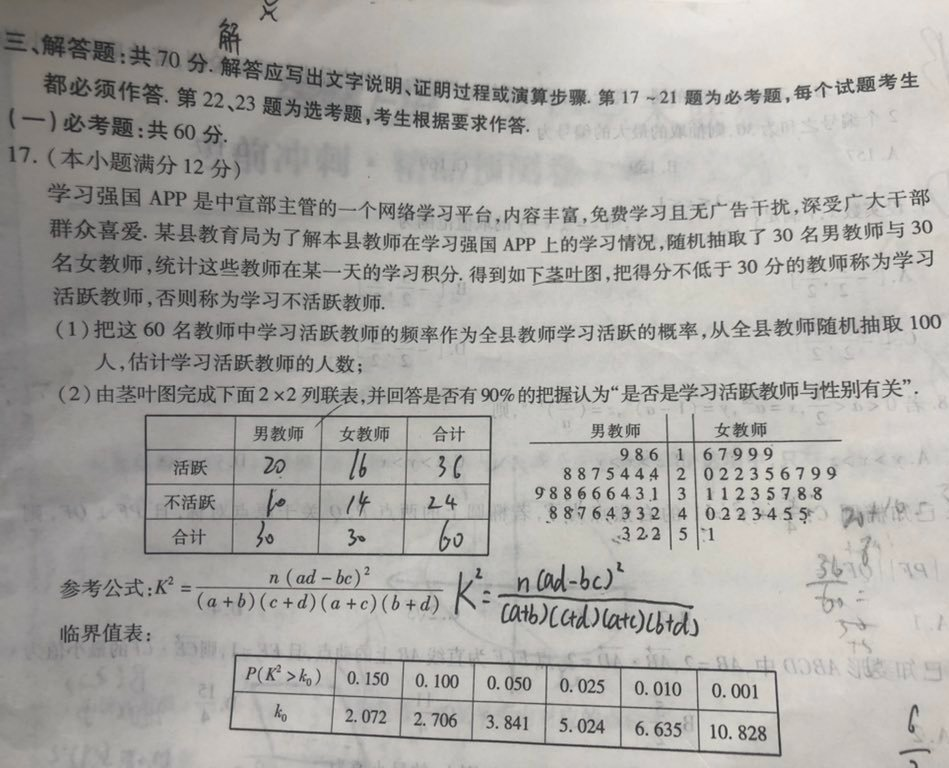 解
三、解答题:共 70 分. 解答应写出文字说明、证明过程或演算步骤. 第 17~21 题为必考题,每个试题考生
都必须作答. 第 22、23 题为选考题,考生根据要求作答.
(一)必考题:共 60 分.
17. (本小题满分 12 分)
学习强国 APP 是中宣部主管的一个网络学习平台,内容丰富,免费学习且无广告干扰,深受广大干部
群众喜爱. 某县教育局为了解本县教师在学习强国 APP 上的学习情况,随机抽取了 30 名男教师与 30
名女教师,统计这些教师在某一天的学习积分. 得到如下茎叶图,把得分不低于 30 分的教师称为学习
活跃教师,否则称为学习不活跃教师.
(1)把这 60 名教师中学习活跃教师的频率作为全县教师学习活跃的概率,从全县教师随机抽取 100
人,估计学习活跃教师的人数;
(2)由茎叶图完成下面 2×2 列联表,并回答是否有 90% 的把握认为“是否是学习活跃教师与性别有关”.
男教师 女教师 合计
活跃 20 16 36
不活跃 10 14 24
合计 30 30 60
男教师 女教师
9 8 6 1 6 7 9 9 9
8 8 7 5 4 4 4 2 0 2 2 3 5 6 7 9 9
9 8 8 6 6 6 4 3 1 3 1 1 2 3 5 7 8 8
8 8 7 6 4 3 3 2 4 0 2 2 3 4 5 5
3 2 2 5 1
36
60 =
参考公式:K² = n(ad-bc)² / (a+b)(c+d)(a+c)(b+d)
K² = n(ad-bc)² / (a+b)(c+d)(a+c)(b+d)
临界值表:
P(K²>k₀) 0.150 0.100 0.050 0.025 0.010 0.001
k₀ 2.072 2.706 3.841 5.024 6.635 10.828